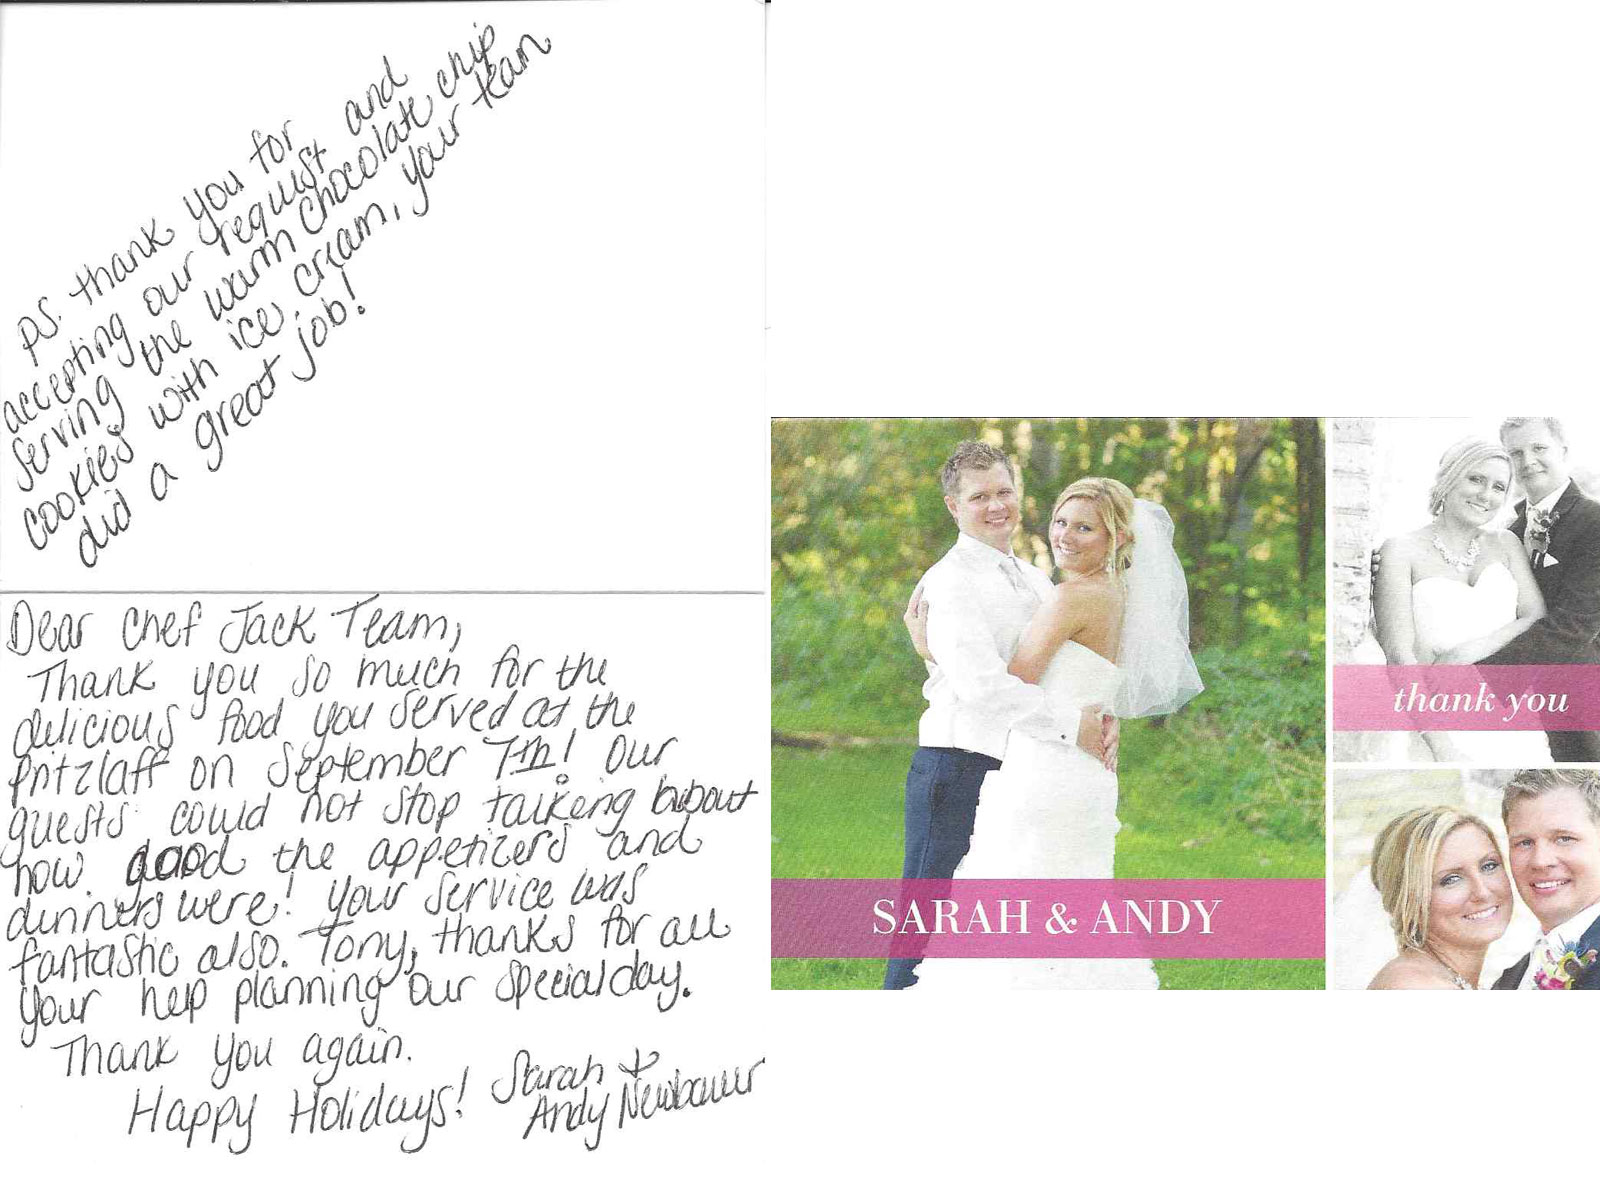 P.S. thank you for
accepting our request and
serving the warm chocolate chip
cookies with ice cream, your team
did a great job!
Dear Chef Jack Team,
Thank you so much for the
delicious food you served at the
Pritzlaff on September 7th! Our
guests could not stop talking about
how good the appetizers and
dinners were! Your service was
fantastic also. Tony, thanks for all
your help planning our special day.
Thank you again.
Happy Holidays! Sarah &
Andy Newbauer
thank you
SARAH & ANDY